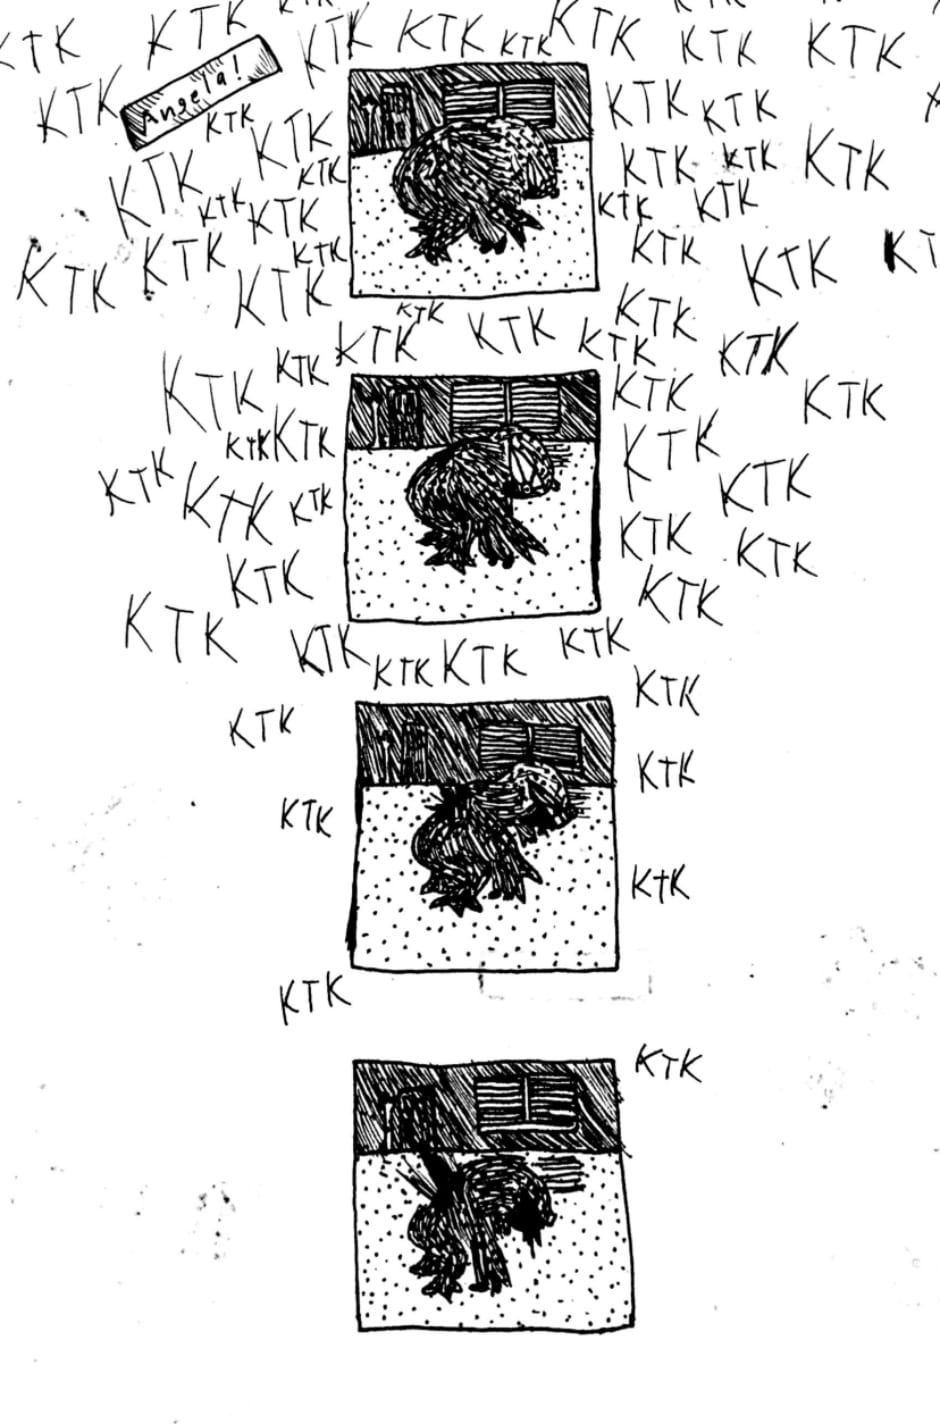 KTK
KTK KTK KTK KTK KTK KTK KTK KTK
Angela!
KTK KTK KTK KTK
KTK KTK KTK KTK
KTK KTK KTK
KTK KTK KTK KTK
KTK KTK KTK KTK
KTK KTK KTK
KTK KTK KTK KTK
KTK KTK KTK KTK
KTK KTK KTK KTK
KTK KTK KTK
KTK KTK KTK KTK
KTK KTK KTK
KTK KTK
KTK KTK KTK KTK KTK
KTK KTK
KTK KTK
KTK
KTK
KTK